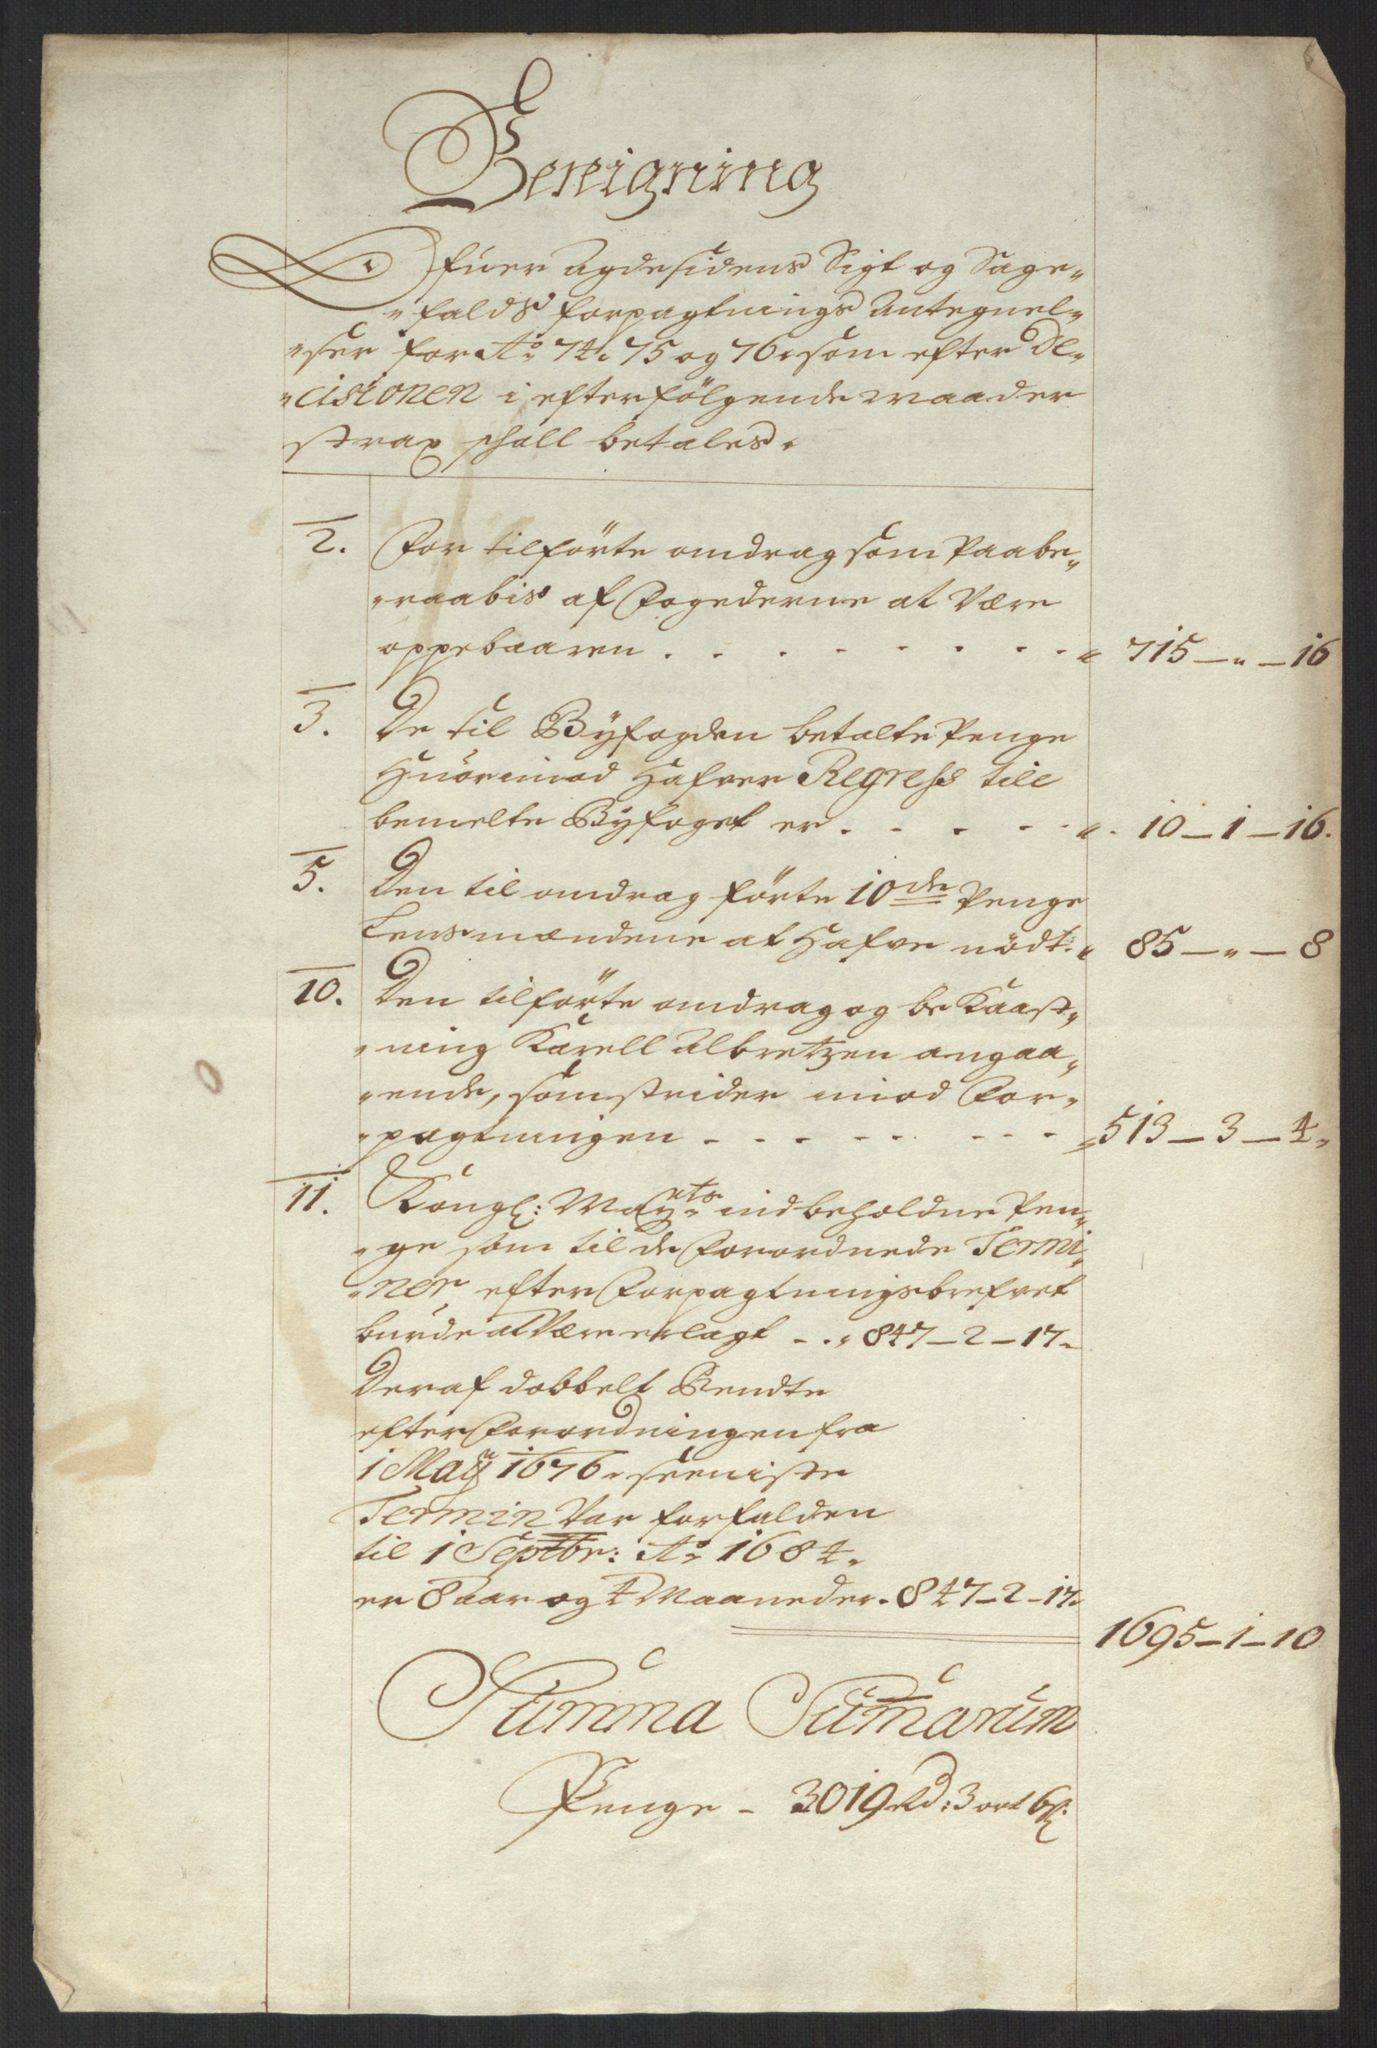 Bereigning
Ofuer Agdesidens Sigt og Sage„
„falds forpagtnings Antegnel„
„ser for Aō 74. 75 og 76. som efter De„
„cisionen i efterfölgende maader
strax schall betales.
2. For tilförte omdrag som Paabe„
„raabis af Fogederne at Være
oppebaaren . . . . . . . . „ 715 — „ — 16
3. De til Bÿfogden betalte Penge
Huorimod Hafver Regress till
bemelte Bÿfoget er . . . . . „. 10 — 1 — 16.
5. Den til omdrag förte 10de Penge
Lensmændene at Hafve nödt: „ 85 — „ — 8
10. Den tilförte omdrag og be Kaast„
„ning Karell Albretzen angaa„
„ende, som strider imod For„
„pagtningen . . . . . . . . „ 513 — 3 — 4 „
11. Kongl: Maÿts indbeholdne Pen„
„ge som til de Forordnede Termi„
„ner efter Forpagtningsbrefvet
burde at Være erlagt . . „ 847 — 2 — 17.
Deraf dobbelt Rendte
efter Forordningen fra
1 Maÿ 1676. seeniste
Termin Var forfalden
til 1 Septbr: Aō 1684.
er 8 aar og 4 Maaneder. 847 — 2 — 17.
1695 — 1 — 10
Summa Sumarum
Penge – 3019 Rd: 3 ort 6 ſ: